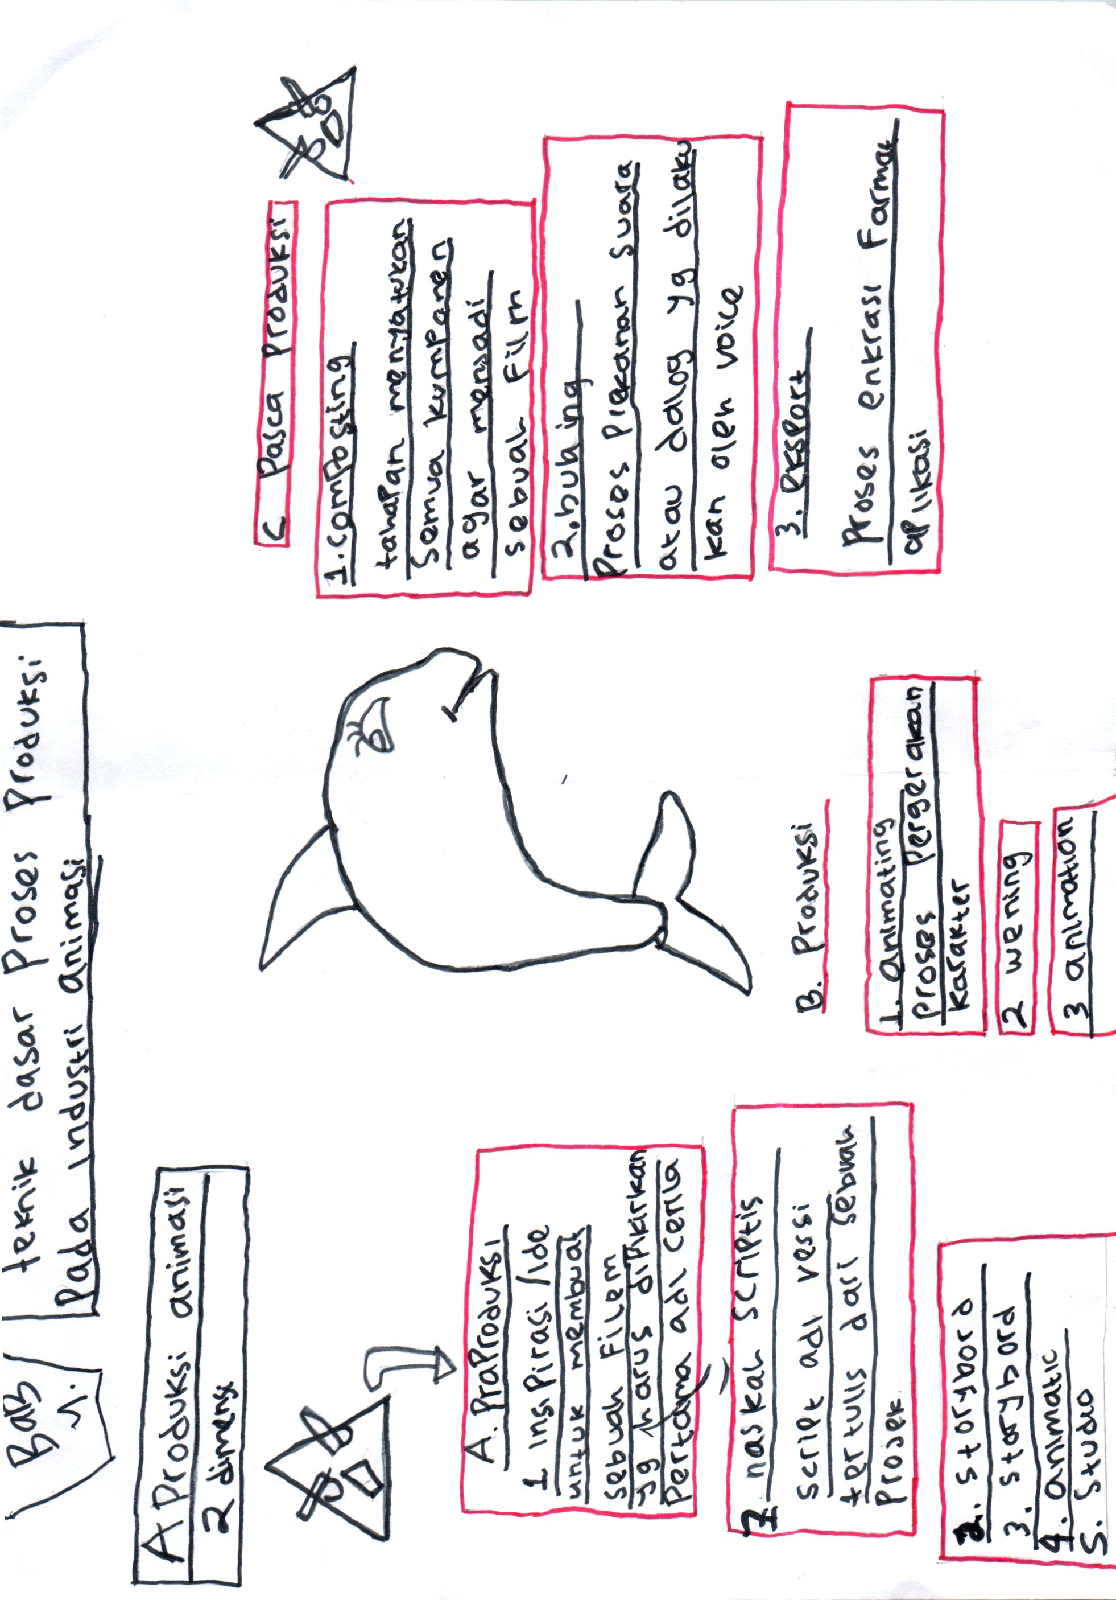 BaB
1.
teknik dasar Proses Produksi
Pada industri animasi
A Produksi animasi
2 dimensi
A. PraProduksi
1 InsiPirasi/ide
untuk membuat
sebuah Filem
yg harus diPikirkan
Pertama adi cerita
1 naskah scriptis
script adi vessi
tertulis dari sebuah
Projek
2. storybord
3. storybord
4. animatic
5. Studio
B. Produksi
1. animating
Proses Pergerakan
karakter
2 wening
3 animation
C Pasca Produksi
1. comPosting
tahaPan menyatukan
Semua kumPanen
agar menjadi
sebuah Film
2. bubing
Proses Prekanan suara
atau dalog yg dilaku
kan oleh voice
3. eksPort
Proses enkrasi Farmat
aplikasi